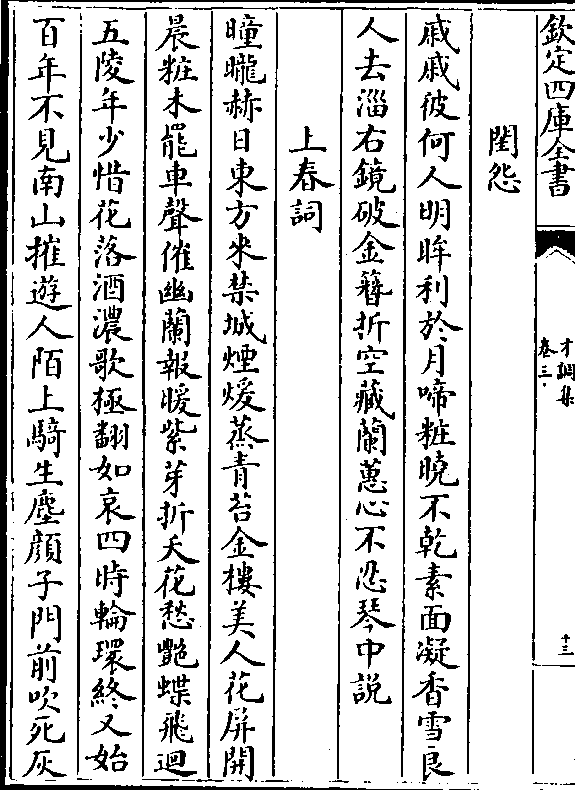 欽定四庫全書
才調集
卷三
十三
閨怨
戚戚彼何人明眸利於月啼粧曉不乾素面凝香雪良
人去淄右鏡破金簪折空藏蘭蕙心不忍琴中説
上春詞
曈曨赫日東方來禁城煙煖蒸青苔金樓美人花屏開
晨粧未罷車聲催幽蘭報暖紫芽折夭花愁艷蝶飛迴
五陵年少惜花落酒濃歌極翻如哀四時輪環終又始
百年不見南山摧遊人陌上騎生塵顔子門前吹死灰